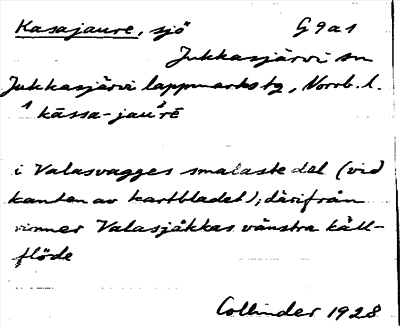 Kasajaure, sjö G9a1
Jukkasjärvi sn
Jukkasjärvi lappmarks tg, Norrb. l.
ˈkāssa-jauˈrē
i Valasvagges smalaste del (vid
kanten av kartbladet); därifrån
rinner Valasjåkkas vänstra käll-
flöde
Collinder 1928